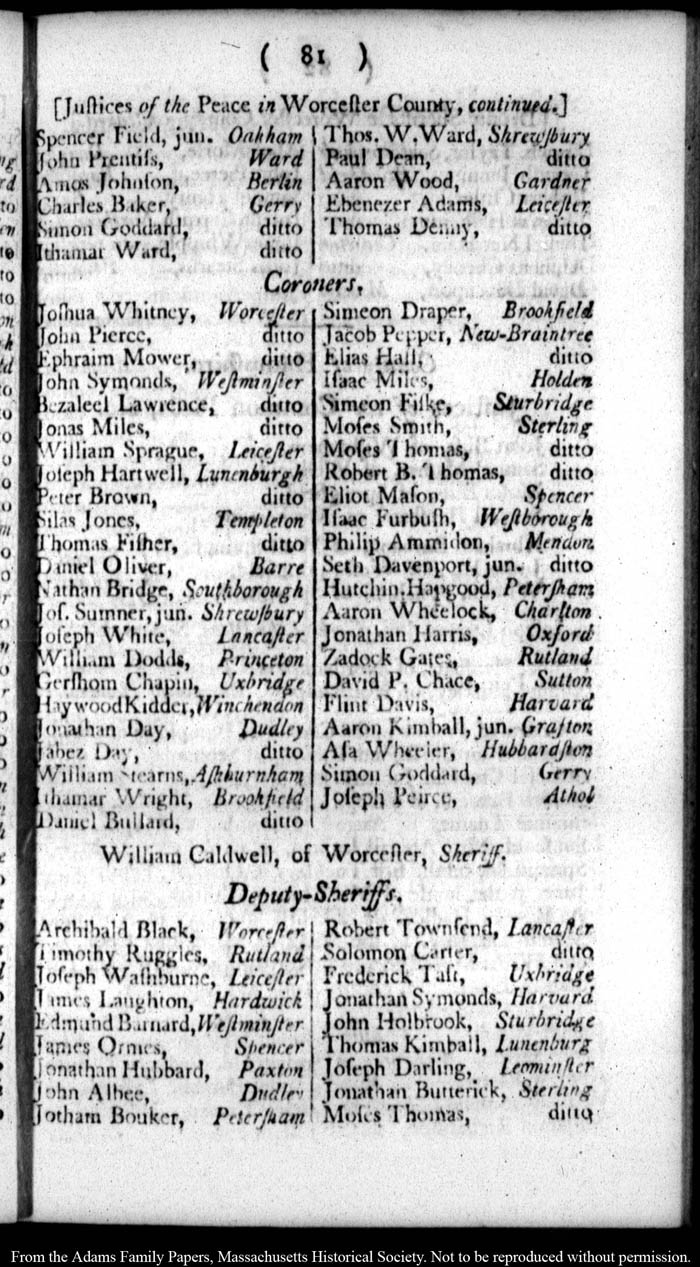 ( 81 )
[Juſtices of the Peace in Worceſter County, continued.]
Spencer Field, jun. Oakham
John Prentiſs, Ward
Amos Johnſon, Berlin
Charles Baker, Gerry
Simon Goddard, ditto
Ithamar Ward, ditto
Thos. W. Ward, Shrewſbury
Paul Dean, ditto
Aaron Wood, Gardner
Ebenezer Adams, Leiceſter
Thomas Denny, ditto
Coroners.
Joſhua Whitney, Worceſter
John Pierce, ditto
Ephraim Mower, ditto
John Symonds, Weſtminſter
Bezaleel Lawrence, ditto
Jonas Miles, ditto
William Sprague, Leiceſter
Joſeph Hartwell, Lunenburgh
Peter Brown, ditto
Silas Jones, Templeton
Thomas Fiſher, ditto
Daniel Oliver, Barre
Nathan Bridge, Southborough
Joſ. Sumner, jun. Shrewſbury
Joſeph White, Lancaſter
William Dodds, Princeton
Gerſhom Chapin, Uxbridge
Haywood Kidder, Winchendon
Jonathan Day, Dudley
Jabez Day, ditto
William Stearns, Aſhburnham
Ithamar Wright, Brookfield
Daniel Bullard, ditto
Simeon Draper, Brookfield
Jacob Pepper, New-Braintree
Elias Hall, ditto
Iſaac Miles, Holden
Simeon Fiſke, Sturbridge
Moſes Smith, Sterling
Moſes Thomas, ditto
Robert B. Thomas, ditto
Eliot Maſon, Spencer
Iſaac Furbuſh, Weſtborough
Philip Ammidon, Mendon
Seth Davenport, jun. ditto
Hutchin. Hapgood, Peterſham
Aaron Wheelock, Charlton
Jonathan Harris, Oxford
Zadock Gates, Rutland
David P. Chace, Sutton
Flint Davis, Harvard
Aaron Kimball, jun. Grafton
Aſa Wheeler, Hubbardſton
Simon Goddard, Gerry
Joſeph Peirce, Athol
William Caldwell, of Worceſter, Sheriff.
Deputy-Sheriffs.
Archibald Black, Worceſter
Timothy Ruggles, Rutland
Joſeph Waſhburne, Leiceſter
James Laughton, Hardwick
Edmund Barnard, Weſtminſter
James Ormes, Spencer
Jonathan Hubbard, Paxton
John Albee, Dudley
Jotham Bouker, Peterſham
Robert Townſend, Lancaſter
Solomon Carter, ditto
Frederick Taft, Uxbridge
Jonathan Symonds, Harvard
John Holbrook, Sturbridge
Thomas Kimball, Lunenburg
Joſeph Darling, Leominſter
Jonathan Butterick, Sterling
Moſes Thomas, ditto
From the Adams Family Papers, Massachusetts Historical Society. Not to be reproduced without permission.